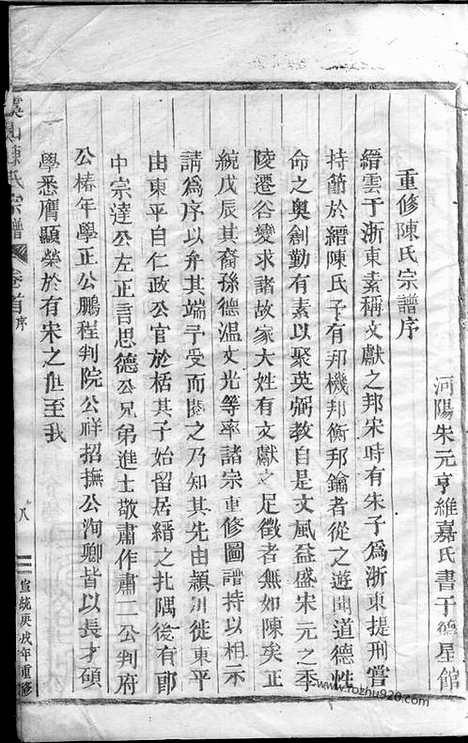 河陽朱元亨維嘉氏書于德星館
重修陳氏宗譜序
縉雲于浙東素稱文獻之邦宋時有朱子為浙東提刑嘗
持節於縉陳氏子有邦機邦衡邦鑰者從之遊聞道德性
命之奧創勤有素以聚英弼教自是文風益盛宋元之季
陵遷谷變求諸故家大姓有文獻之足徵者無如陳矣正
統戊辰其裔孫德温文光等率諸宗重修圖譜持以相示
請為序以弁其端予受而閱之乃知其先由潁川徙東平
由東平自仁政公官於栝其子始留居縉之北隅後有郎
中宗達公左正言思德公兄弟進士敬肅作肅二公判府
公椿年學正公鵬程判院公祥招撫公洵卿皆以長才碩
學悉膺顯榮於有宋之世至我
陳氏宗譜
卷首
序
八
宣統庚戌年重修
www.fozhu920.com